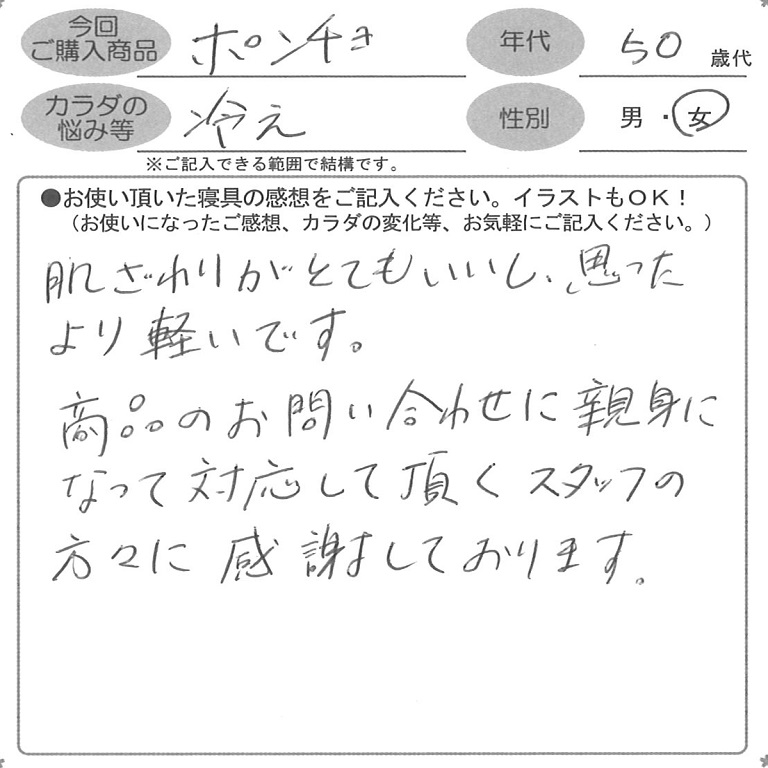 今回
ご購入商品
ポンチョ
年代
50 歳代
カラダの
悩み等
冷え
性別
男・女
※ご記入できる範囲で結構です。
●お使い頂いた寝具の感想をご記入ください。イラストもOK！
（お使いになったご感想、カラダの変化等、お気軽にご記入ください。）
肌ざわりがとてもいいし、思った
より軽いです。
商品のお問い合わせに親身に
なって対応して頂くスタッフの
方々に感謝しております。